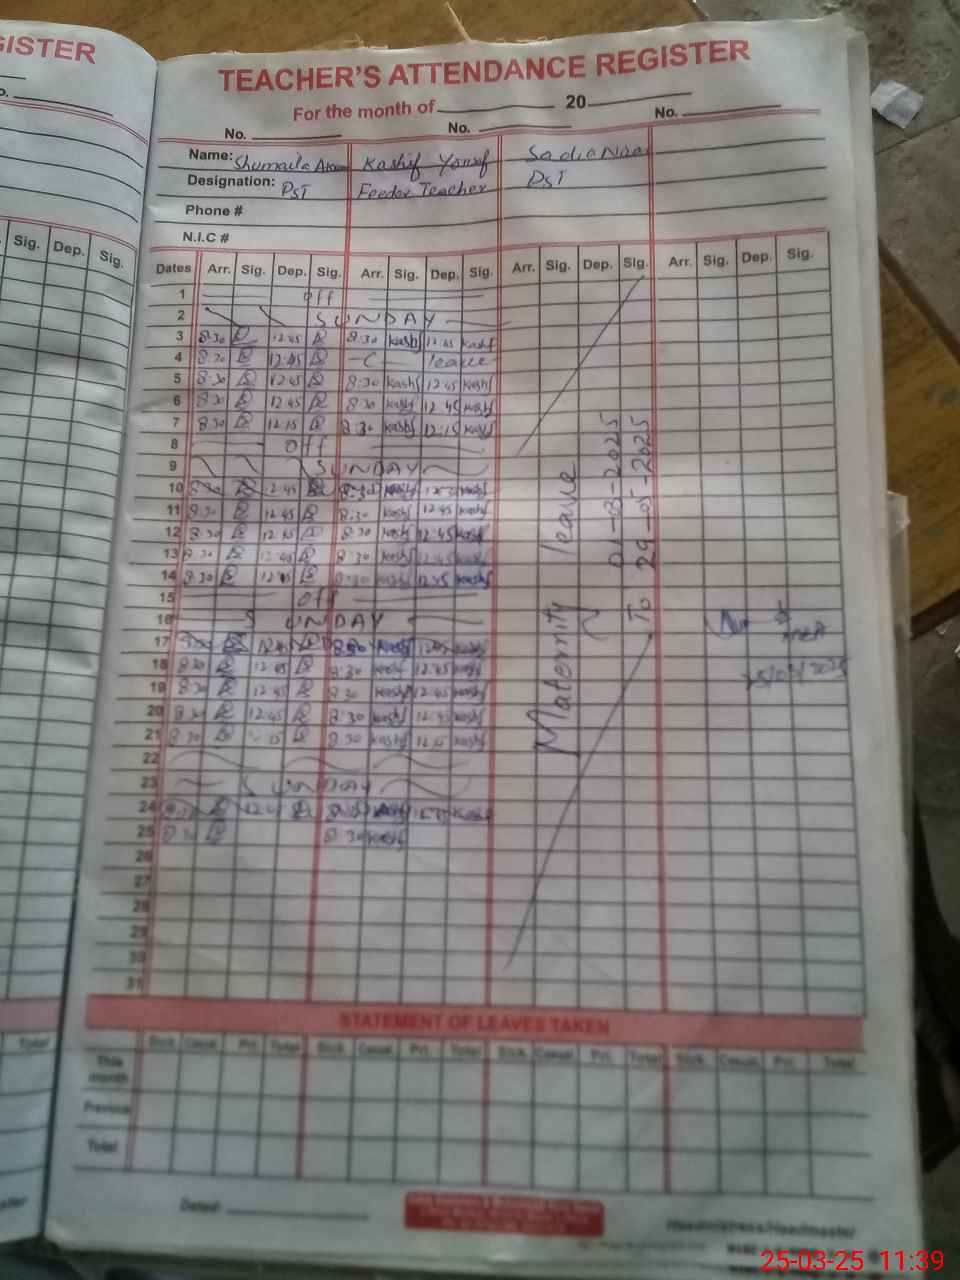 GISTER
TEACHER'S ATTENDANCE REGISTER
For the month of 20
No. No. No.
Name: Shumaila Kashif Yousf Sadia
Designation: PST Feeder Teacher PST
Phone #
N.I.C #
Sig. Dep. Sig.
Dates Arr. Sig. Dep. Sig. Arr. Sig. Dep. Sig. Arr. Sig. Dep. Sig. Arr. Sig. Dep. Sig.
1 off
2 SUNDAY
3 8:30 12:45 8:30 Kashf 12:45 Kashf
4 8:30 12:45 C leave
5 8:30 12:45 8:30 Kashf 12:45 Kashf
6 8:30 12:45 8:30 Kashf 12:45 Kashf
7 8:30 12:15 8:30 Kashf 12:15 Kashf
8 Off
9 SUNDAY
10 8:30 12:45 8:30 Kashf Kashf
11 8:30 12:45 8:30 Kashf 12:45 Kashf
12 8:30 12:45 8:30 Kashf 12:45 Kashf
13 8:30 12:45 8:30 Kashf 12:45 Kashf
14 8:30 12:45 8:30 Kashf 12:45 Kashf
15 Off
16 SUNDAY
17 12:45 8:30 Kashf 12:45 Kashf
18 8:30 12:45 8:30 Kashf 12:45 Kashf
19 8:30 12:45 8:30 Kashf 12:45 Kashf
20 8:30 12:45 8:30 Kashf 12:45 Kashf
21 8:30 8:30 Kashf 12:15 Kashf
22
23 SUNDAY
24 8:30 12:45 Kashf
25 8:30 8:30 Kashf
26
27
28
29
30
31
Maternity leave
01-03-2025
To 29-05-2025
STATEMENT OF LEAVES TAKEN
Total Sick. Casual. Pri. Total Sick. Casual. Pri. Total Sick. Casual. Pri. Total Sick. Casual. Pri. Total
This month
Previous
Total
Dated:
Headmistress/Headmaster
25-03-25 11:39